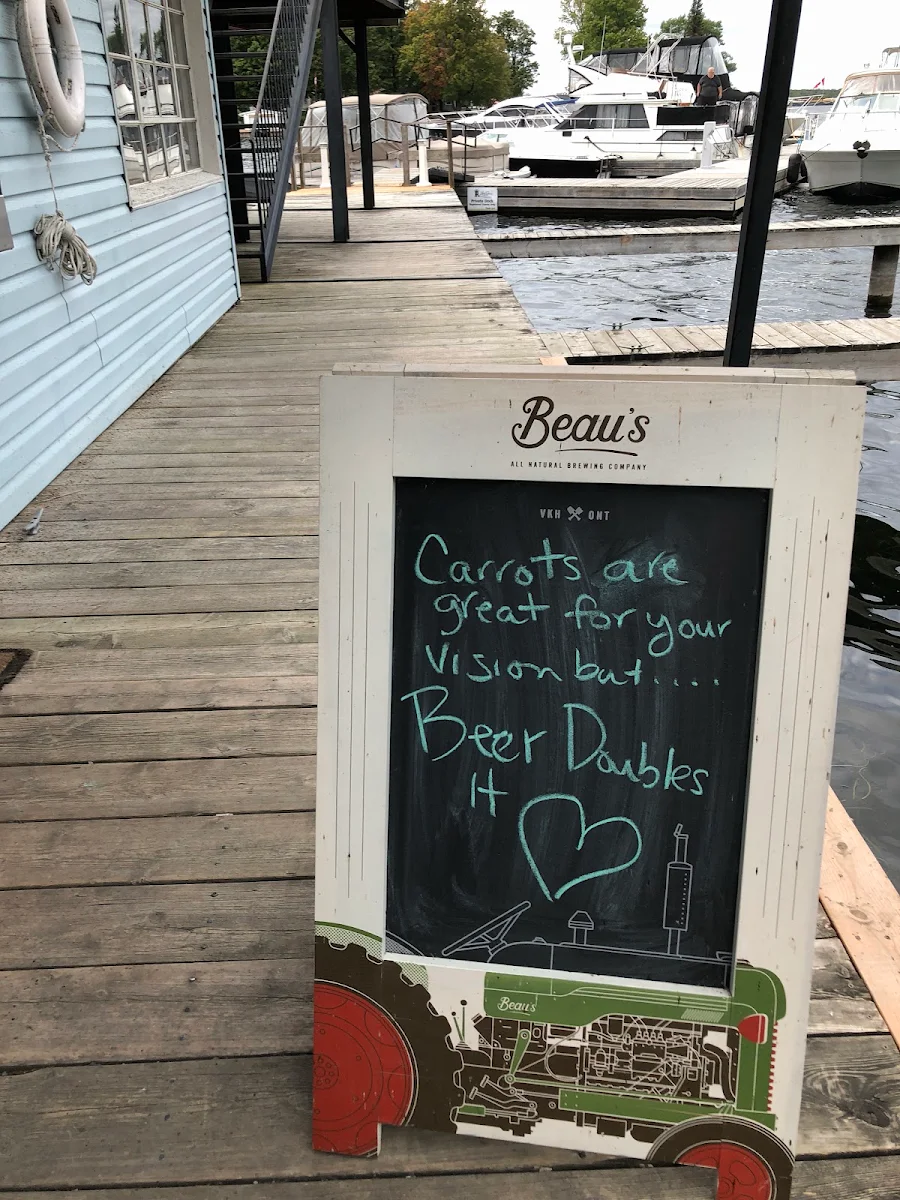 Private Dock
Beau's
ALL NATURAL BREWING COMPANY
VKH ONT
Carrots are
great for your
vision but....
Beer Doubles
It
Beau's